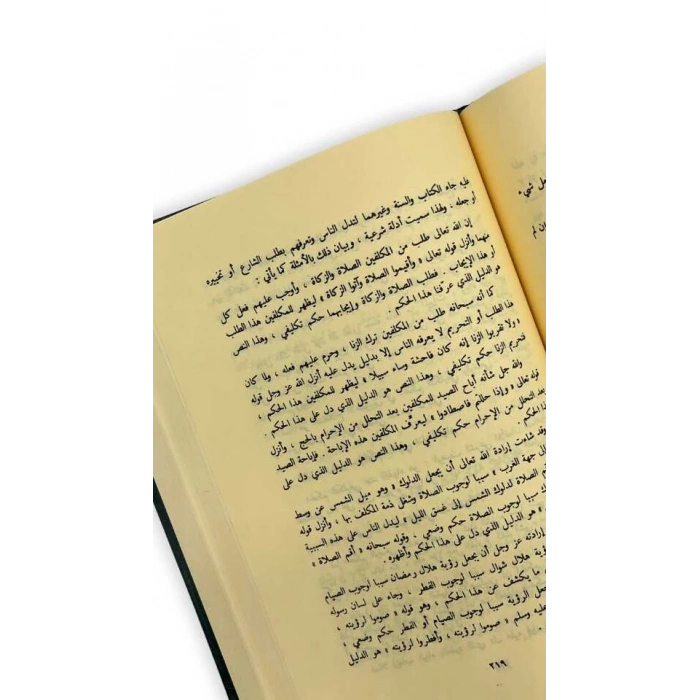 عليه جاء الكتاب والسنة وغيرهما لتدل الناس وتعرفهم بطلب الشارع أو تخييره
أو جعله ، ولهذا سميت أدلة شرعية ، وبيان ذلك بالأمثلة كما يأتي :
إن الله تعالى طلب من المكلفين الصلاة والزكاة ، وأوجب عليهم فعل كل
منهما وأنزل قوله تعالى « وأقيموا الصلاة وآتوا الزكاة » ليظهر للمكلفين هذا الطلب
أو هذا الإيجاب . فطلب الصلاة والزكاة وإيجابهما حكم تكليفي ، وهذا النص
هو الدليل الذي عرفنا هذا الحكم .
كما أنه سبحانه طلب من المكلفين ترك الزنا ، وحرم عليهم فعله ، ولما كان
هذا الطلب أو التحريم لا يعرفه الناس إلا بدليل يدل عليه أنزل الله عز وجل قوله
« ولا تقربوا الزنا إنه كان فاحشة وساء سبيلا » ليظهر للمكلفين هذا الحكم ،
تحريم الزنا حكم تكليفي ، وهذا النص هو الدليل الذي دل على هذا الحكم .
والله جل شأنه أباح الصيد للمكلفين بعد التحلل من الإحرام بالحج ، وأنزل
قوله تعالى « وإذا حللتم فاصطادوا » ليعرف المكلفين هذه الإباحة . فإباحة الصيد
بعد التحلل من الإحرام حكم تكليفي ، وهذا النص هو الدليل الذي دل على
الحكم .
وقد شاءت إرادة الله تعالى أن يجعل الدلوك « وهو ميل الشمس عن وسط
جهة الغرب » سببا لوجوب الصلاة وشغل ذمة المكلف بها ، وأنزل قوله
أقم الصلاة لدلوك الشمس إلى غسق الليل » ليدل الناس على هذه السببية
سببا لوجوب الصلاة حكم وضعي ، وقوله سبحانه « أقم الصلاة »
« هو الدليل الذي دل على هذا الحكم وأظهره .
إرادته عز وجل أن يجعل رؤية هلال رمضان سببا لوجوب الصيام
رؤية هلال شوال سببا لوجوب الفطر ، وجاء على لسان رسوله
ما يكشف عن هذا الحكم ، وهو قوله « صوموا لرؤيته ،
الرؤية سببا لوجوب الصيام أو الفطر حكم وضعي ،
عليه وسلم « صوموا لرؤيته ، وأفطروا لرؤيته » هو الدليل
٢١٩